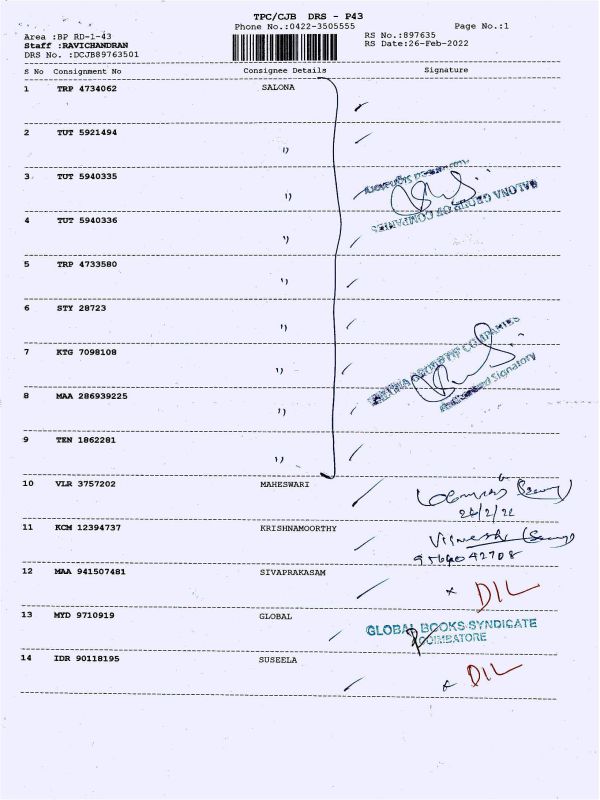 TPC/CJB DRS - P43
Phone No.:0422-3505555 Page No.:1
Area :BP RD-1-43 RS No.:897635
Staff :RAVICHANDRAN RS Date:26-Feb-2022
DRS No. :DCJB89763501
S No Consignment No Consignee Details Signature
1 TRP 4734062 SALONA
2 TUT 5921494
")
3 TUT 5940335
")
Authorised Signatory
SALONA GROUP OF COMPANIES
4 TUT 5940336
")
5 TRP 4733580
")
6 STY 28723
")
SALONA GROUP OF COMPANIES
7 KTG 7098108
")
Authorised Signatory
8 MAA 286939225
")
9 TEN 1862281
")
10 VLR 3757202 MAHESWARI
26/2/22
11 KCM 12394737 KRISHNAMOORTHY
12 MAA 941507481 SIVAPRAKASAM
x DIL
13 MYD 9710919 GLOBAL
GLOBAL BOOKS SYNDICATE
COIMBATORE
14 IDR 90118195 SUSEELA
x DIL